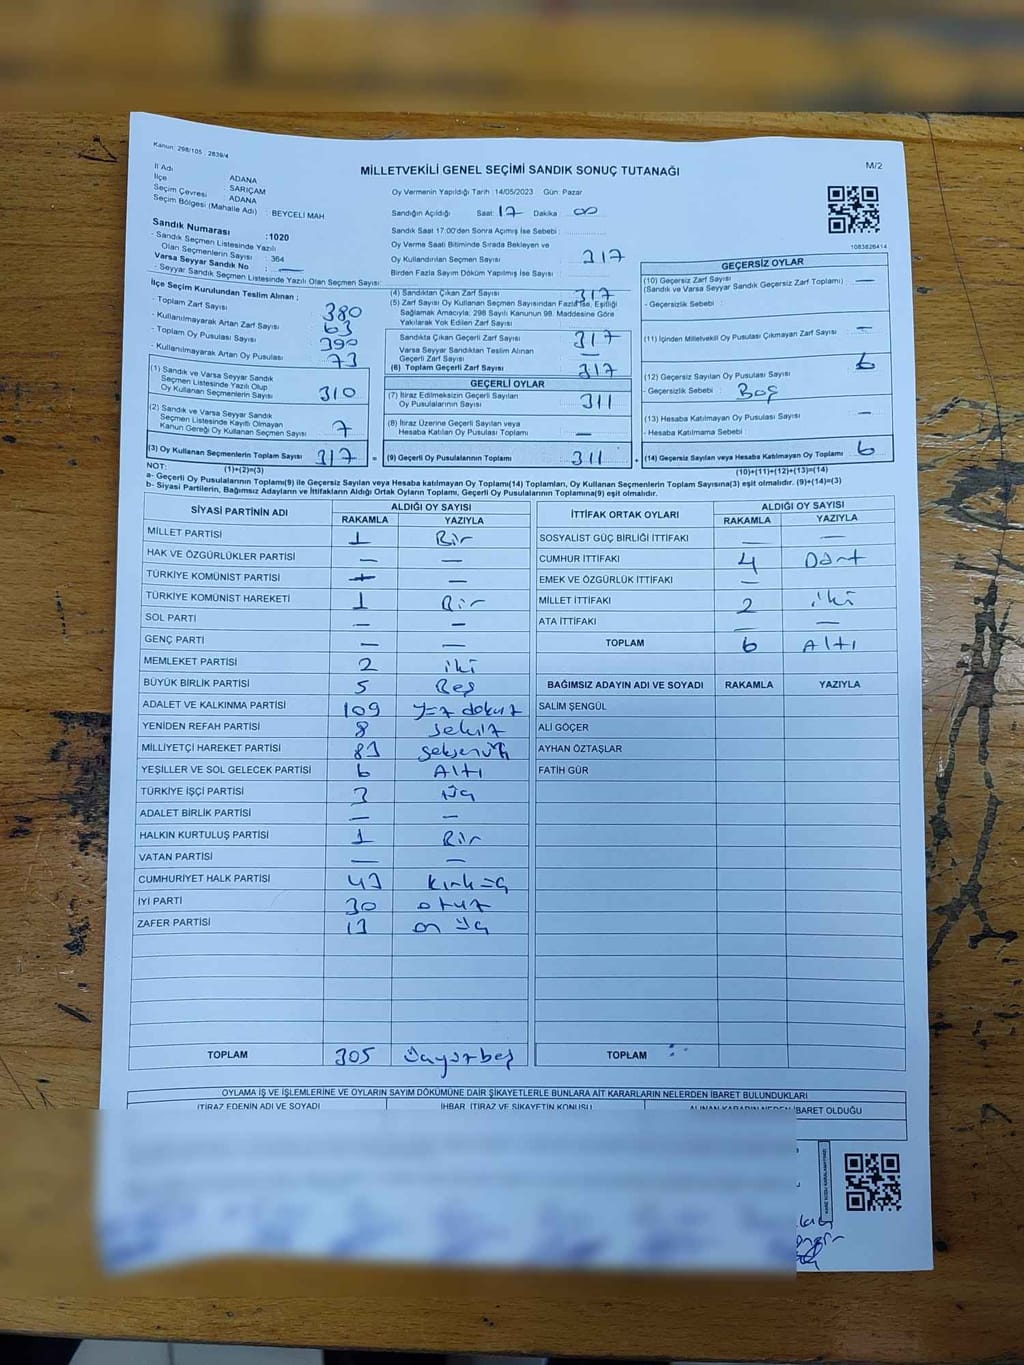 Kanun: 298/105 , 2839/4
MİLLETVEKİLİ GENEL SEÇİMİ SANDIK SONUÇ TUTANAĞI
M/2
İl Adı ADANA
İlçe SARIÇAM
Seçim Çevresi ADANA
Seçim Bölgesi (Mahalle Adı) : BEYCELİ MAH
Sandık Numarası :1020
- Sandık Seçmen Listesinde Yazılı
Olan Seçmenlerin Sayısı : 364
Varsa Seyyar Sandık No : —
- Seyyar Sandık Seçmen Listesinde Yazılı Olan Seçmen Sayısı:
İlçe Seçim Kurulundan Teslim Alınan ;
- Toplam Zarf Sayısı : 380
- Kullanılmayarak Artan Zarf Sayısı : 63
- Toplam Oy Pusulası Sayısı : 390
- Kullanılmayarak Artan Oy Pusulası : 73
(1) Sandık ve Varsa Seyyar Sandık
Seçmen Listesinde Yazılı Olup
Oy Kullanan Seçmenlerin Sayısı 310
(2) Sandık ve Varsa Seyyar Sandık
Seçmen Listesinde Kayıtlı Olmayan
Kanun Gereği Oy Kullanan Seçmen Sayısı 7
(3) Oy Kullanan Seçmenlerin Toplam Sayısı 317
(1)+(2)=(3)
Oy Vermenin Yapıldığı Tarih :14/05/2023 Gün: Pazar
Sandığın Açıldığı Saat: 17 Dakika 00
Sandık Saat 17:00'den Sonra Açımış İse Sebebi :
Oy Verme Saati Bitiminde Sırada Bekleyen ve
Oy Kullandırılan Seçmen Sayısı : 317
Birden Fazla Sayım Döküm Yapılmış İse Sayısı :
(4) Sandıktan Çıkan Zarf Sayısı 317
(5) Zarf Sayısı Oy Kullanan Seçmen Sayısından Fazla İse, Eşitliği
Sağlamak Amacıyla, 298 Sayılı Kanunun 98. Maddesine Göre
Yakılarak Yok Edilen Zarf Sayısı :
Sandıkta Çıkan Geçerli Zarf Sayısı : 317
Varsa Seyyar Sandıktan Teslim Alınan
Geçerli Zarf Sayısı : —
(6) Toplam Geçerli Zarf Sayısı : 317
GEÇERLİ OYLAR
(7) İtiraz Edilmeksizin Geçerli Sayılan
Oy Pusulalarının Sayısı : 311
(8) İtiraz Üzerine Geçerli Sayılan veya
Hesaba Katılan Oy Pusulası Toplamı : —
= (9) Geçerli Oy Pusulalarının Toplamı 311 +
1083826414
GEÇERSİZ OYLAR
(10) Geçersiz Zarf Sayısı
(Sandık ve Varsa Seyyar Sandık Geçersiz Zarf Toplamı) : —
- Geçersizlik Sebebi :
(11) İçinden Milletvekili Oy Pusulası Çıkmayan Zarf Sayısı : —
(12) Geçersiz Sayılan Oy Pusulası Sayısı : 6
- Geçersizlik Sebebi: Boş
(13) Hesaba Katılmayan Oy Pusulası Sayısı : —
- Hesaba Katılmama Sebebi :
(14) Geçersiz Sayılan veya Hesaba Katılmayan Oy Toplamı 6
(10)+(11)+(12)+(13)=(14)
NOT:
a- Geçerli Oy Pusulalarının Toplamı(9) ile Geçersiz Sayılan veya Hesaba katılmayan Oy Toplamı(14) Toplamları, Oy Kullanan Seçmenlerin Toplam Sayısına(3) eşit olmalıdır. (9)+(14)=(3)
b- Siyasi Partilerin, Bağımsız Adayların ve İttifakların Aldığı Ortak Oyların Toplamı, Geçerli Oy Pusulalarının Toplamına(9) eşit olmalıdır.
SİYASİ PARTİNİN ADI ALDIĞI OY SAYISI
RAKAMLA YAZIYLA
MİLLET PARTİSİ 1 Bir
HAK VE ÖZGÜRLÜKLER PARTİSİ — —
TÜRKİYE KOMÜNİST PARTİSİ — —
TÜRKİYE KOMÜNİST HAREKETİ 1 Bir
SOL PARTİ — —
GENÇ PARTİ — —
MEMLEKET PARTİSİ 2 iki
BÜYÜK BİRLİK PARTİSİ 5 Beş
ADALET VE KALKINMA PARTİSİ 109 yüz dokuz
YENİDEN REFAH PARTİSİ 8 sekiz
MİLLİYETÇİ HAREKET PARTİSİ 83 seksenüç
YEŞİLLER VE SOL GELECEK PARTİSİ 6 Altı
TÜRKİYE İŞÇİ PARTİSİ 3 üç
ADALET BİRLİK PARTİSİ — —
HALKIN KURTULUŞ PARTİSİ 1 Bir
VATAN PARTİSİ — —
CUMHURİYET HALK PARTİSİ 43 kırk üç
İYİ PARTİ 30 otuz
ZAFER PARTİSİ 13 on üç
TOPLAM 305 üçyüzbeş
İTTİFAK ORTAK OYLARI ALDIĞI OY SAYISI
RAKAMLA YAZIYLA
SOSYALİST GÜÇ BİRLİĞİ İTTİFAKI — —
CUMHUR İTTİFAKI 4 Dört
EMEK VE ÖZGÜRLÜK İTTİFAKI —
MİLLET İTTİFAKI 2 iki
ATA İTTİFAKI — —
TOPLAM 6 Altı
BAĞIMSIZ ADAYIN ADI VE SOYADI RAKAMLA YAZIYLA
SALİM ŞENGÜL
ALİ GÖÇER
AYHAN ÖZTAŞLAR
FATİH GÜR
TOPLAM
OYLAMA İŞ VE İŞLEMLERİNE VE OYLARIN SAYIM DÖKÜMÜNE DAİR ŞİKAYETLERLE BUNLARA AİT KARARLARIN NELERDEN İBARET BULUNDUKLARI
İTİRAZ EDENİN ADI VE SOYADI İHBAR, İTİRAZ VE ŞİKAYETİN KONUSU ALINAN KARARIN NEDEN İBARET OLDUĞU